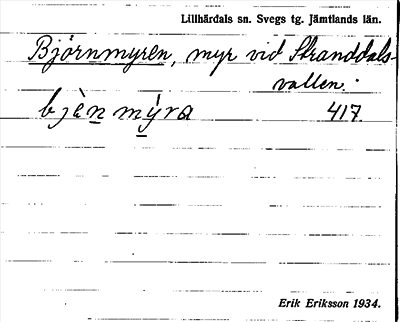 Lillhärdals sn. Svegs tg. Jämtlands län.
Björnmyren, myr vid Stranddals-
vallen.
bjènmýra 417.
Erik Eriksson 1934.